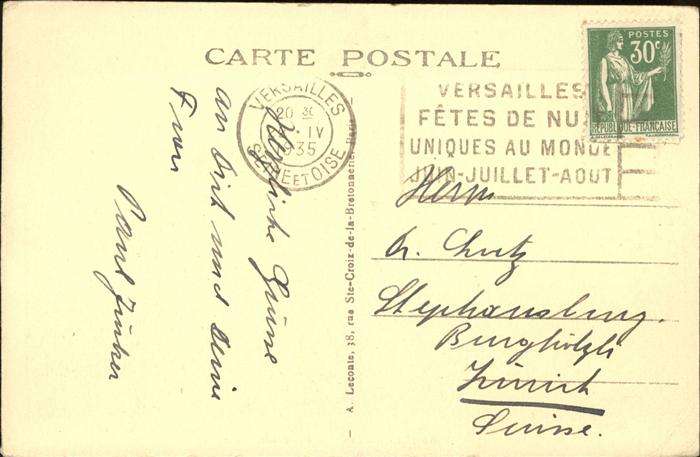 CARTE POSTALE
POSTES
30c
RÉPUBLIQUE FRANÇAISE
VERSAILLES
20 30
IV
1935
SEINE ET OISE
VERSAILLES
FÊTES DE NUIT
UNIQUES AU MONDE
JUIN-JUILLET-AOUT
Herzliche Grüsse
an Dich und Deine
Frau
Paul
A. Leconte, 38, rue Ste-Croix-de-la-Bretonnerie, Paris
Herrn
Stephansburg.
Burghölzli
Zürich
Suisse.